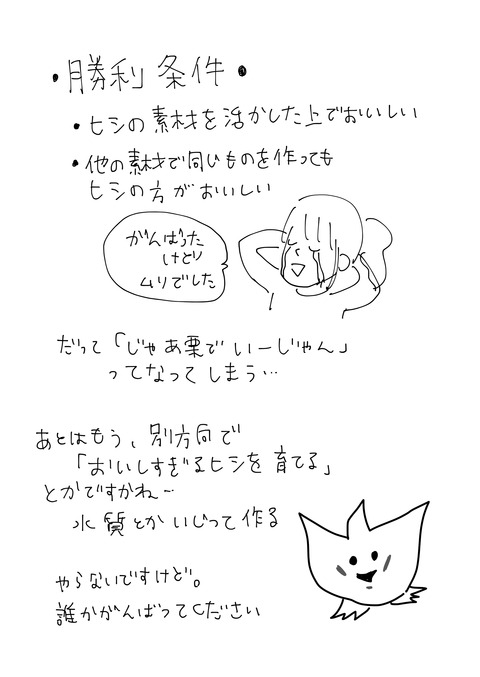 ・勝利条件・
・ヒシの素材を活かした上でおいしい
・他の素材で同じものを作っても
ヒシの方がおいしい
がんばった
けど
ムリでした
だって「じゃあ栗でいーじゃん」
ってなってしまう…
あとはもう、別方向で
「おいしすぎるヒシを育てる」
とかですかね~
水質とかいじって作る
やらないですけど。
誰かがんばってください